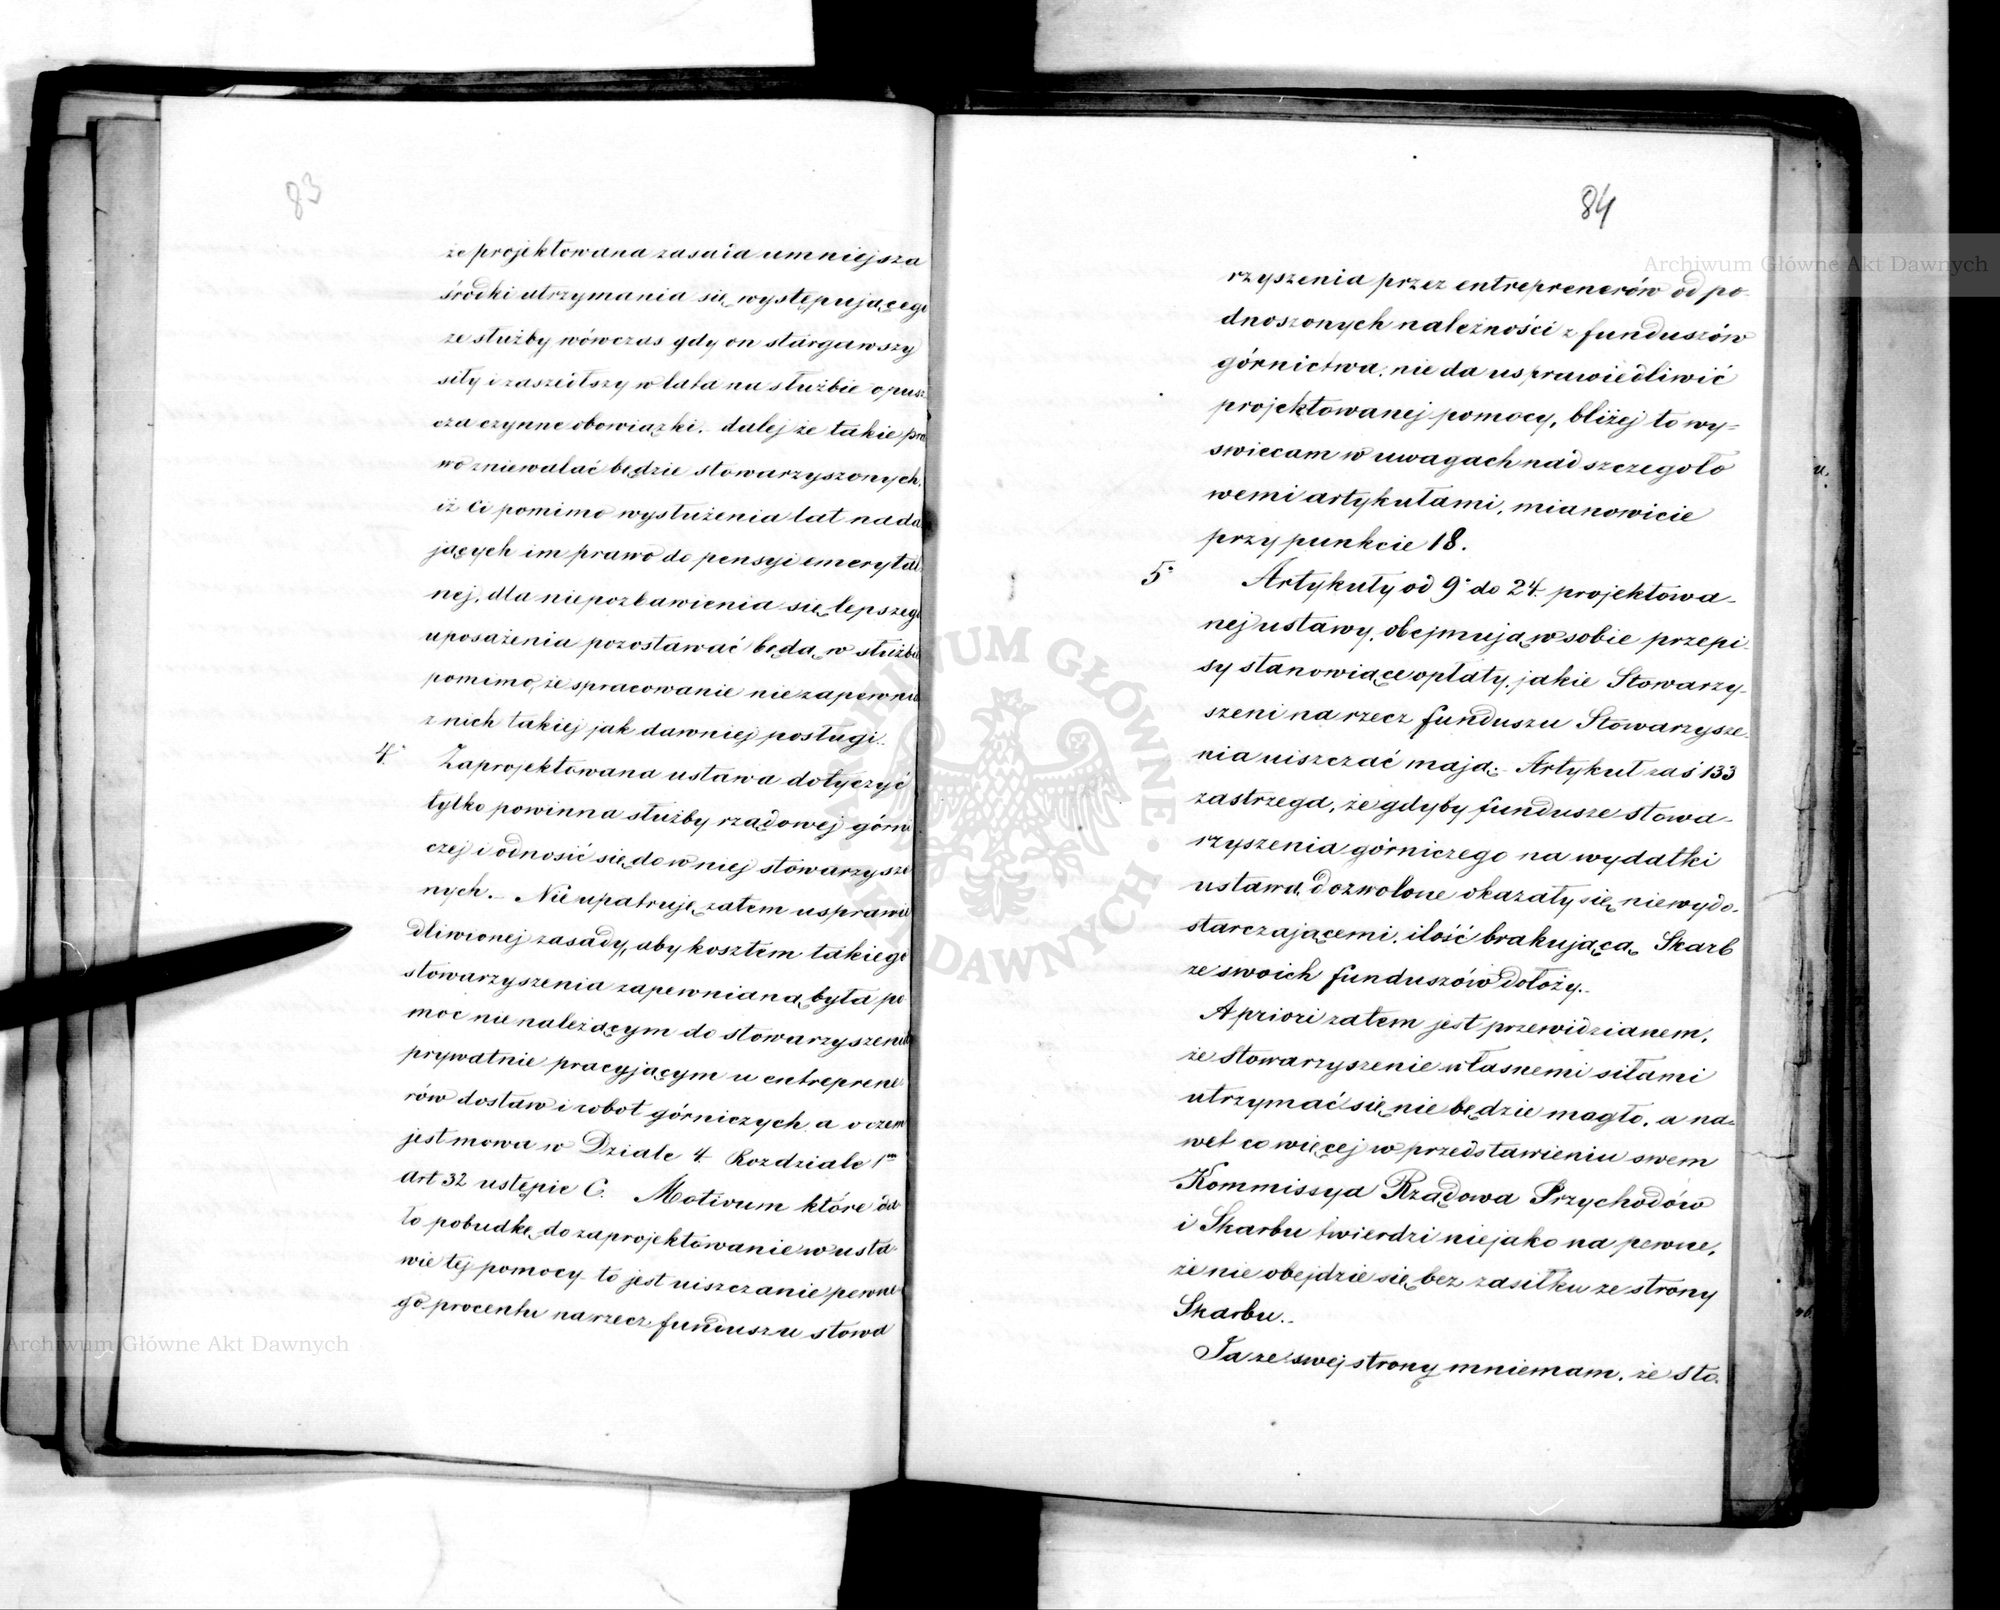 83
że projektowana zasada umniejsza
środki utrzymania się występującego
ze służby wówczas gdy on stargawszy
siły i zaszedłszy w lata na służbie opusz
cza czynne obowiązki. dalej że takie pra
wo zniewalać będzie stowarzyszonych,
iż ci pomimo wysłużenia lat nada
jących im prawo do pensyi emerytal
nej, dla niepozbawienia się lepszego
uposażenia pozostawać będą w służbie
pomimo, że spracowanie nie zapewnia
z nich takiej jak dawniej posługi.
4. Zaprojektowana ustawa dotyczyć
tylko powinna służby rządowej górni
czej i odnosić się do w niej stowarzyszo
nych. - Nie upatruję zatem usprawie
dliwionej zasady, aby kosztem takiego
stowarzyszenia zapewnianą była po
moc nie należącym do stowarzyszenia
prywatnie pracyjącym u entreprene
rów dostaw i robot górniczych a o czem
jest mowa w Dziale 4 Rozdziale 1m
Art 32 ustępie C. Motivum które da
ło pobudkę do zaprojektowanie w usta
wie tej pomocy to jest uiszczanie pewne
go procentu na rzecz funduszu stowa
84
rzyszenia przez entreprenerów od po-
dnoszonych należności z funduszów
górnictwa, nie da usprawiedliwić
projektowanej pomocy, bliżej to wy=
swiecam w uwagach nad szczegoło
wemi artykułami, mianowicie
przy punkcie 18.
5 Artykuły od 9 do 24. projektowa-
nej ustawy, obejmują w sobie przepi-
sy stanowiące opłaty, jakie Stowarzy-
szeni na rzecz funduszu Stowarzysze-
nia uiszczać mają. - Artykuł zaś 133
zastrzega, że gdyby fundusze stowa-
rzyszenia górniczego na wydatki
ustawą dozwolone okazały się niewydo-
starczającemi, ilość brakującą Skarb
ze swoich funduszów dołoży.
A priori zatem jest przewidzianem,
że Stowarzyszenie własnemi siłami
utrzymać się nie będzie magło, a na=
wet co więcej w przedstawieniu swem
Kommissya Rządowa Przychodów
i Skarbu twierdzi niejako na pewne,
że nie obejdzie się bez zasiłku ze strony
Skarbu.
Ja ze swej strony mniemam, że sto-
Archiwum Główne Akt Dawnych
Archiwum Główne Akt Dawnych
ARCHIWUM GŁÓWNE AKT DAWNYCH